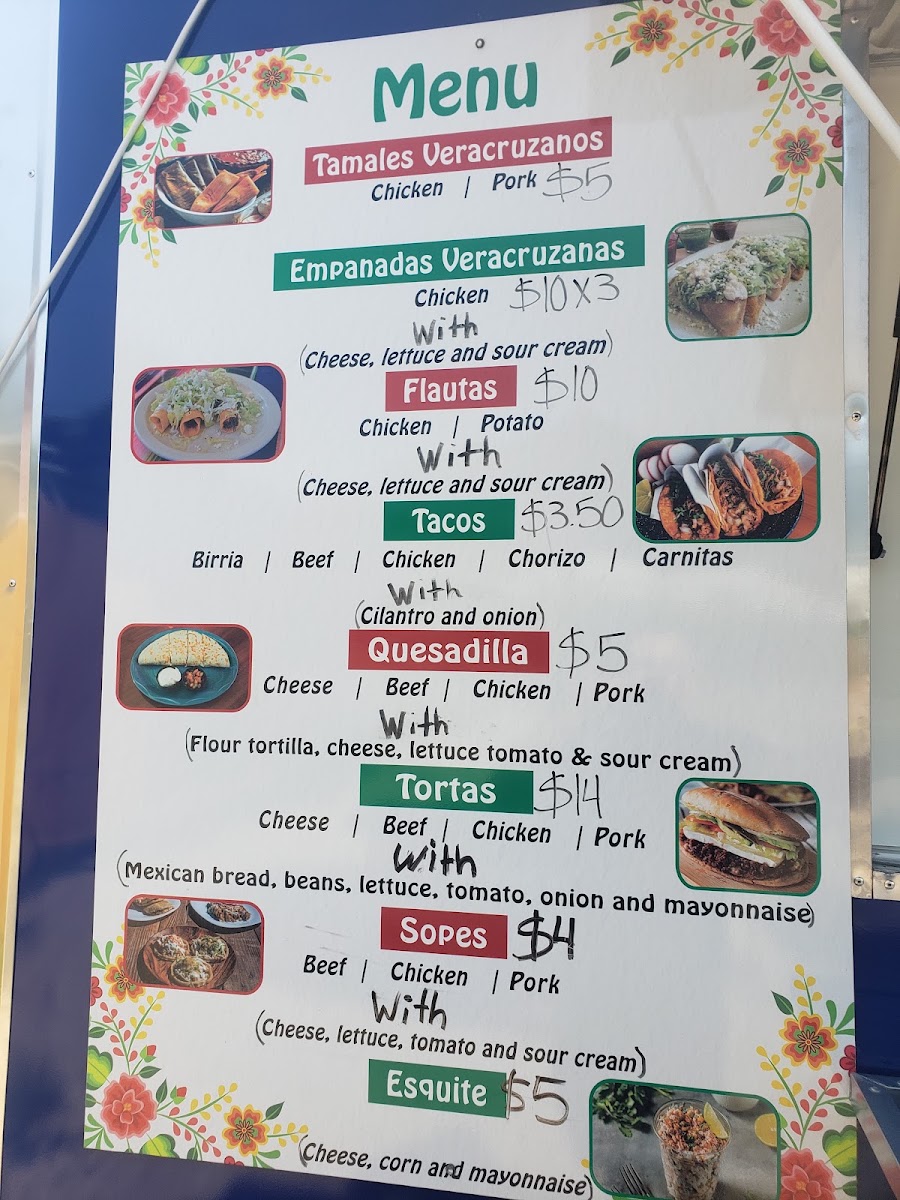 Menu
Tamales Veracruzanos
Chicken | Pork $5
Empanadas Veracruzanas
Chicken $10x3
With
(Cheese, lettuce and sour cream)
Flautas $10
Chicken | Potato
With
(Cheese, lettuce and sour cream)
Tacos $3.50
Birria | Beef | Chicken | Chorizo | Carnitas
With
(Cilantro and onion)
Quesadilla $5
Cheese | Beef | Chicken | Pork
With
(Flour tortilla, cheese, lettuce tomato & sour cream)
Tortas $14
Cheese | Beef | Chicken | Pork
With
(Mexican bread, beans, lettuce, tomato, onion and mayonnaise)
Sopes $4
Beef | Chicken | Pork
With
(Cheese, lettuce, tomato and sour cream)
Esquite $5
(Cheese, corn and mayonnaise)